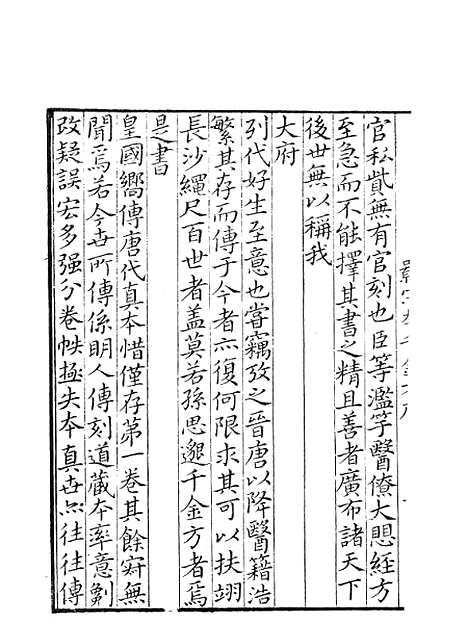 官私貲無有官刻也臣等濫竽醫僚大思經方
至急而不能擇其書之精且善者廣布諸天下
後世無以稱我
大府
列代好生至意也嘗竊攷之晉唐以降醫籍浩
繁其存而傳于今者亦復何限求其可以扶翊
長沙繩尺百世者盖莫若孫思邈千金方者焉
是書
皇國嚮傳唐代真本惜僅存第一卷其餘寂無
聞焉若今世所傳係明人傳刻道藏本率意劖
改疑誤宏多强分卷帙極失本真世亦往往傳